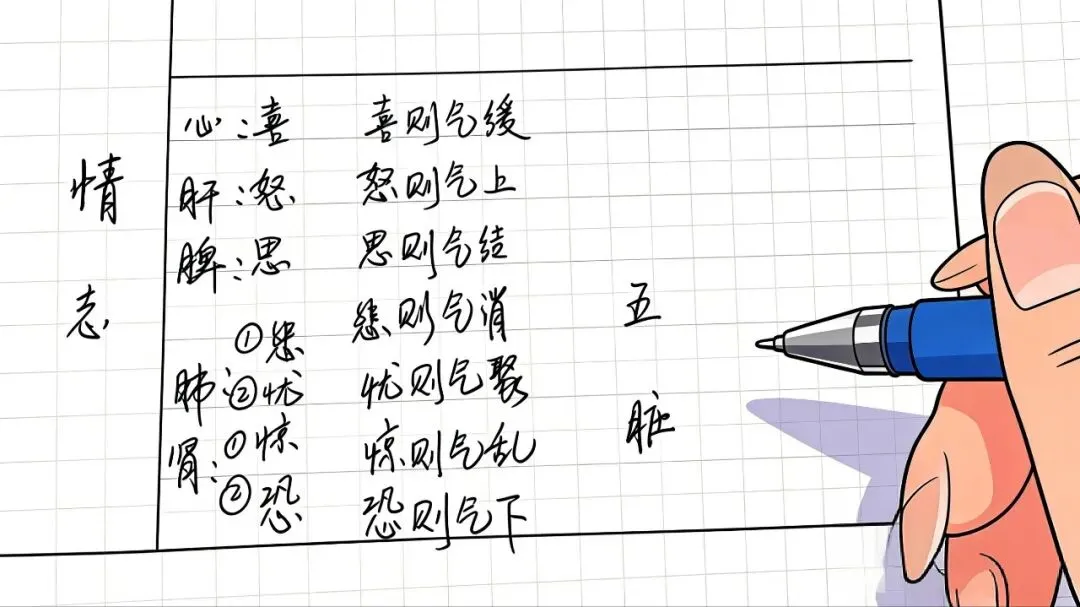 情志
心:喜 喜则气缓
肝:怒 怒则气上
脾:思 思则气结
①悲 悲则气消
肺:②忧 忧则气聚
肾:①惊 惊则气乱
②恐 恐则气下
五脏